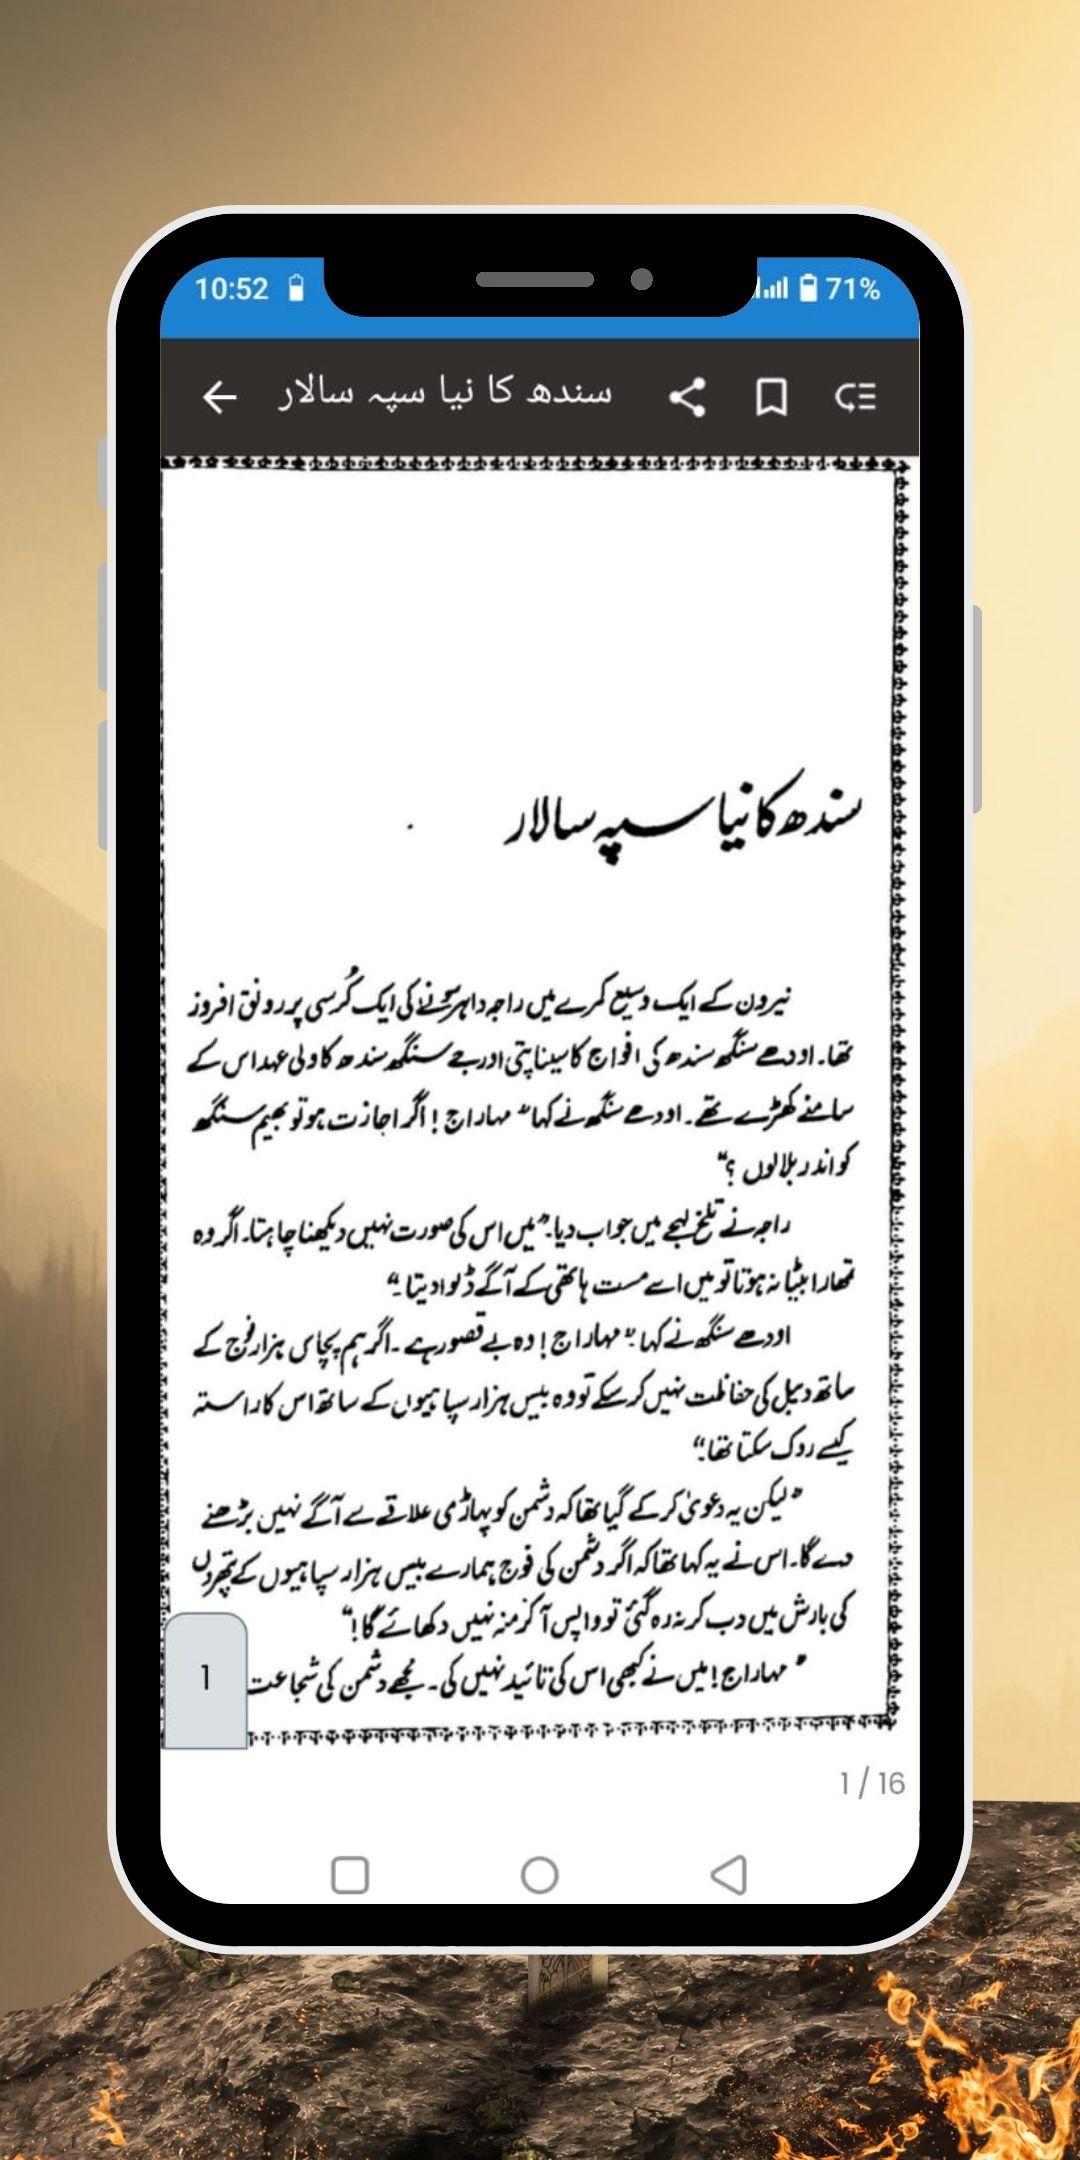 10:52
71%
سندھ کا نیا سپہ سالار
سندھ کا نیا سپہ سالار
نیرون کے ایک وسیع کمرے میں راجہ داہر سونے کی ایک کُرسی پر رونق افروز
تھا۔ اودھے سنگھ سندھ کی افواج کا سیناپتی اور جے سنگھ سندھ کا ولی عہد اس کے
سامنے کھڑے تھے۔ اودھے سنگھ نے کہا "مہاراج! اگر اجازت ہو تو بھیم سنگھ
کو اندر بلا لوں؟"
راجہ نے تلخ لہجے میں جواب دیا۔ "میں اس کی صورت نہیں دیکھنا چاہتا۔ اگر وہ
تمھارا بیٹا نہ ہوتا تو میں اسے مست ہاتھی کے آگے ڈلوا دیتا۔"
اودھے سنگھ نے کہا۔ "مہاراج! وہ بے قصور ہے۔ اگر ہم پچاس ہزار فوج کے
ساتھ دیبل کی حفاظت نہیں کر سکے تو وہ بیس ہزار سپاہیوں کے ساتھ اس کا راستہ
کیسے روک سکتا تھا۔"
"لیکن یہ دعویٰ کر کے گیا تھا کہ دشمن کو پہاڑی علاقے سے آگے نہیں بڑھنے
دے گا۔ اس نے یہ کہا تھا کہ اگر دشمن کی فوج ہمارے بیس ہزار سپاہیوں کے پتھروں
کی بارش میں دب کر نہ رہ گئی تو واپس آ کر منہ نہیں دکھائے گا!"
"مہاراج! میں نے کبھی اس کی تائید نہیں کی۔ مجھے دشمن کی شجاعت
1
1 / 16